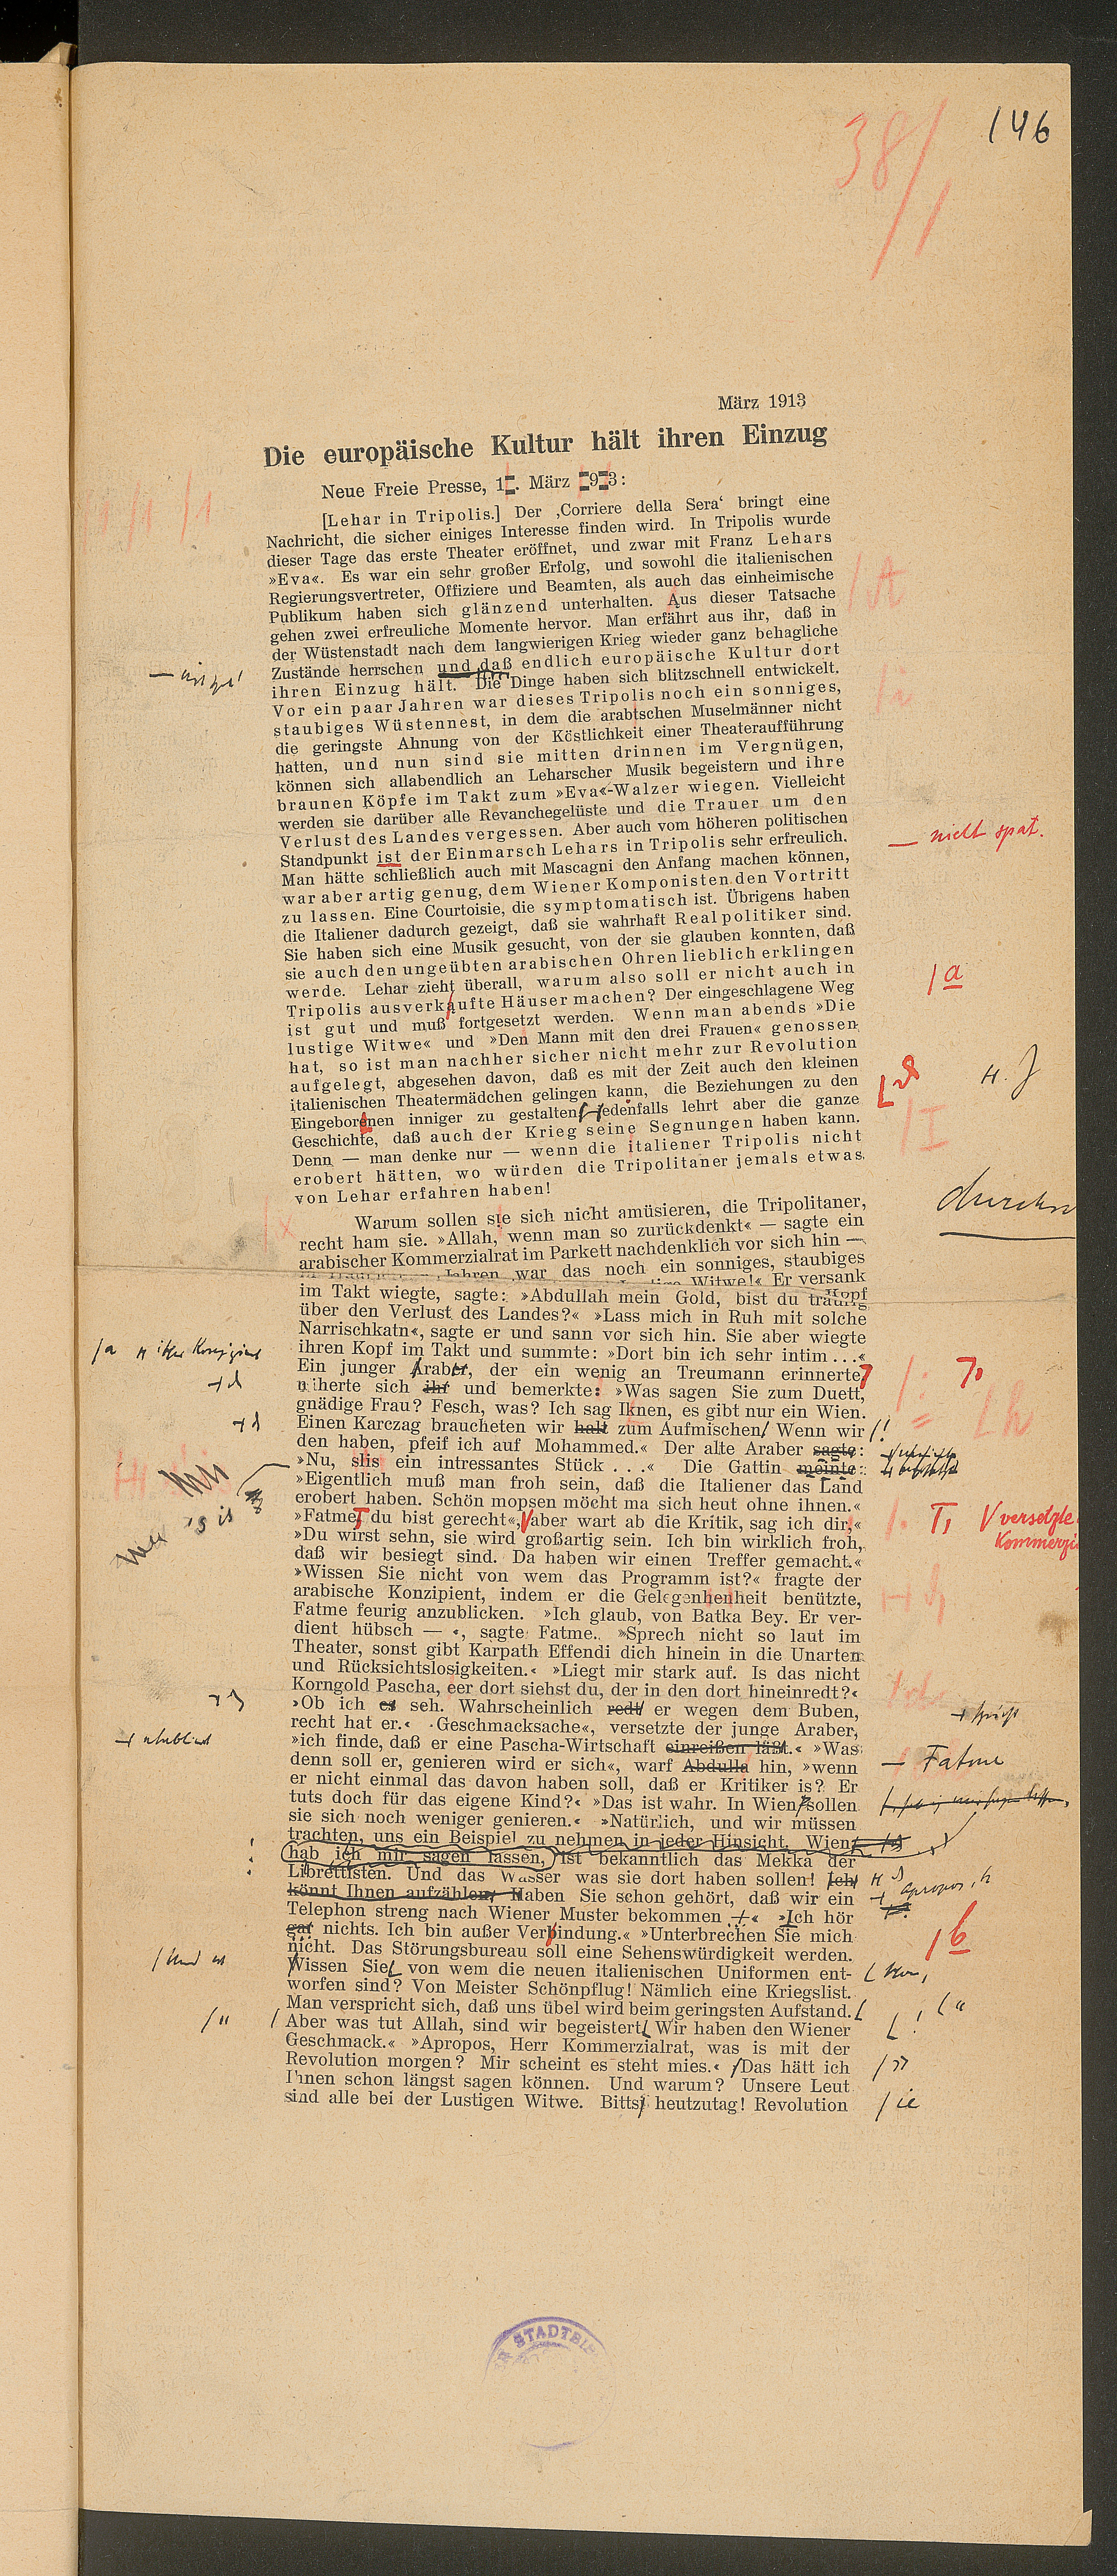 146
38/1
März 1913
Die europäische Kultur hält ihren Einzug
Neue Freie Presse, 1. März 93:
[Lehar in Tripolis.] Der ‚Corriere della Sera‘ bringt eine
Nachricht, die sicher einiges Interesse finden wird. In Tripolis wurde
dieser Tage das erste Theater eröffnet, und zwar mit Franz Lehars
»Eva«. Es war ein sehr großer Erfolg, und sowohl die italienischen
Regierungsvertreter, Offiziere und Beamten, als auch das einheimische
Publikum haben sich glänzend unterhalten. Aus dieser Tatsache
gehen zwei erfreuliche Momente hervor. Man erfährt aus ihr, daß in
der Wüstenstadt nach dem langwierigen Krieg wieder ganz behagliche
Zustände herrschen und daß endlich europäische Kultur dort
ihren Einzug hält. Die Dinge haben sich blitzschnell entwickelt.
Vor ein paar Jahren war dieses Tripolis noch ein sonniges,
staubiges Wüstennest, in dem die arabtschen Muselmänner nicht
die geringste Ahnung von der Köstlichkeit einer Theateraufführung
hatten, und nun sind sie mitten drinnen im Vergnügen,
können sich allabendlich an Leharscher Musik begeistern und ihre
braunen Köpfe im Takt zum »Eva«-Walzer wiegen. Vielleicht
werden sie darüber alle Revanchegelüste und die Trauer um den
Verlust des Landes vergessen. Aber auch vom höheren politischen
Standpunkt ist der Einmarsch Lehars in Tripolis sehr erfreulich.
— nicht spat.
Man hätte schließlich auch mit Mascagni den Anfang machen können,
war aber artig genug, dem Wiener Komponisten den Vortritt
zu lassen. Eine Courtoisie, die symptomatisch ist. Übrigens haben
die Italiener dadurch gezeigt, daß sie wahrhaft Realpolitiker sind.
Sie haben sich eine Musik gesucht, von der sie glauben konnten, daß
sie auch den ungeübten arabischen Ohren lieblich erklingen
werde. Lehar zieht überall, warum also soll er nicht auch in
/a
Tripolis ausverkaufte Häuser machen? Der eingeschlagene Weg
ist gut und muß fortgesetzt werden. Wenn man abends »Die
lustige Witwe« und »Den Mann mit den drei Frauen« genossen
hat, so ist man nachher sicher nicht mehr zur Revolution
aufgelegt, abgesehen davon, daß es mit der Zeit auch den kleinen
italienischen Theatermädchen gelingen kann, die Beziehungen zu den
Eingeborenen inniger zu gestalten jedenfalls lehrt aber die ganze
H. J
Geschichte, daß auch der Krieg seine Segnungen haben kann.
/I
Denn — man denke nur — wenn die italiener Tripolis nicht
erobert hätten, wo würden die Tripolitaner jemals etwas
von Lehar erfahren haben!
Warum sollen ste sich nicht amüsieren, die Tripolitaner,
recht ham sie. »Allah, wenn man so zurückdenkt« — sagte ein
arabischer Kommerzialrat im Parkett nachdenklich vor sich hin —
Jahren war das noch ein sonniges, staubiges
Witwe!« Er versank
im Takt wiegte, sagte: »Abdullah mein Gold, bist du traurig
über den Verlust des Landes?« »Lass mich in Ruh mit solche
Narrischkatn«, sagte er und sann vor sich hin. Sie aber wiegte
ihren Kopf im Takt und summte: »Dort bin ich sehr intim . . .«
Ein junger Araber, der ein wenig an Treumann erinnerte
näherte sich ihr und bemerkte: »Was sagen Sie zum Duett,
gnädige Frau? Fesch, was? Ich sag Iknen, es gibt nur ein Wien.
Einen Karczag braucheten wir halt zum Aufmischen Wenn wir
den haben, pfeif ich auf Mohammed.« Der alte Araber sagte:
»Nu, slis ein intressantes Stück . . .« Die Gattin meinte:
's is
»Eigentlich muß man froh sein, daß die Italiener das Land
erobert haben. Schön mopsen möcht ma sich heut ohne ihnen.«
»Fatme, du bist gerecht«, aber wart ab die Kritik, sag ich dir,«
versetzte
»Du wirst sehn, sie wird großartig sein. Ich bin wirklich froh,
daß wir besiegt sind. Da haben wir einen Treffer gemacht.«
»Wissen Sie nicht von wem das Programm ist?« fragte der
arabische Konzipient, indem er die Gelegenheheit benützte,
Fatme feurig anzublicken. »Ich glaub, von Batka Bey. Er ver-
dient hübsch — «, sagte Fatme. »Sprech nicht so laut im
Theater, sonst gibt Karpath Effendi dich hinein in die Unarten
und Rücksichtslosigkeiten.« »Liegt mir stark auf. Is das nicht
Korngold Pascha, eer dort siehst du, der in den dort hineinredt?«
»Ob ich es seh. Wahrscheinlich redt er wegen dem Buben,
recht hat er.« »Geschmacksache«, versetzte der junge Araber,
»ich finde, daß er eine Pascha-Wirtschaft einreißen läßt.« »Was
— Fatme
denn soll er, genieren wird er sich«, warf Abdulla hin, »wenn
er nicht einmal das davon haben soll, daß er Kritiker is? Er
tuts doch für das eigene Kind?« »Das ist wahr. In Wien sollen
sie sich noch weniger genieren.« »Natürlich, und wir müssen
trachten, uns ein Beispiel zu nehmen in jeder Hinsicht. Wien
hab ich mir sagen lassen, ist bekanntlich das Mekka der
Librettisten. Und das Wasser was sie dort haben sollen! Ich
könnt Ihnen aufzählen. Haben Sie schon gehört, daß wir ein
Apropos, h
Telephon streng nach Wiener Muster bekommen .« »Ich hör
gar nichts. Ich bin außer Verbindung.« »Unterbrechen Sie mich
/b
nicht. Das Störungsbureau soll eine Sehenswürdigkeit werden.
Wissen Sie von wem die neuen italienischen Uniformen ent-
worfen sind? Von Meister Schönpflug! Nämlich eine Kriegslist.
Man verspricht sich, daß uns übel wird beim geringsten Aufstand.
Aber was tut Allah, sind wir begeistert Wir haben den Wiener
Geschmack.« »Apropos, Herr Kommerzialrat, was is mit der
Revolution morgen? Mir scheint es steht mies.« Das hätt ich
Ihnen schon längst sagen können. Und warum? Unsere Leut
sind alle bei der Lustigen Witwe. Bitts heutzutag! Revolution
/ie
STADTBI